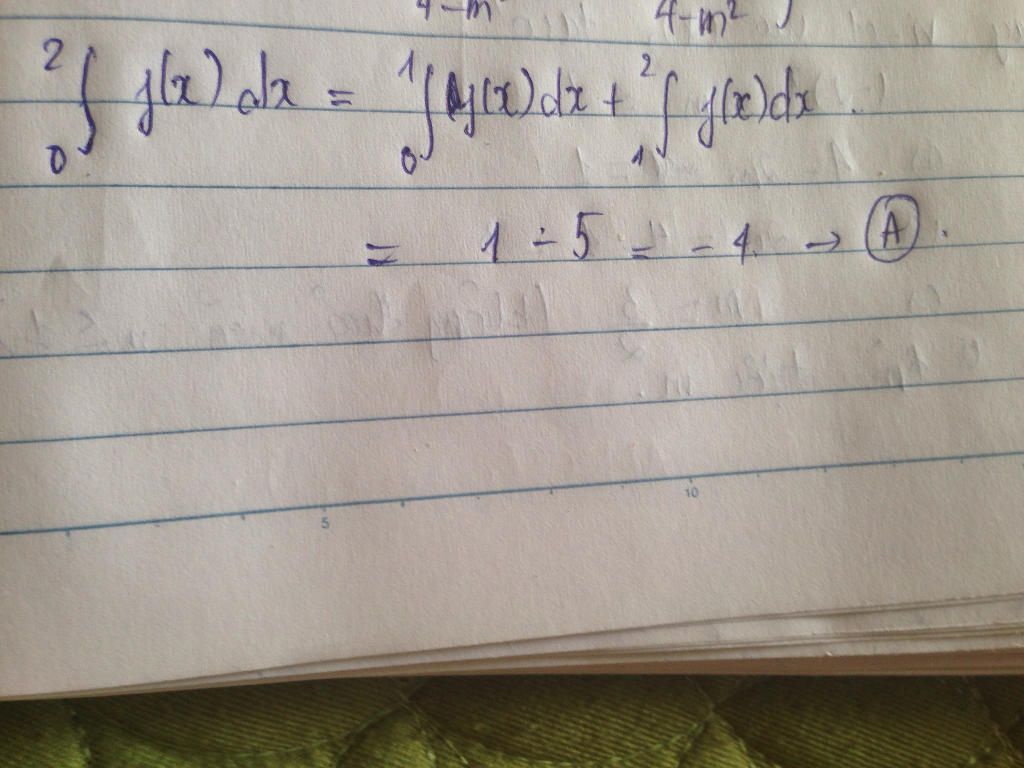 4-m² 4-m² )
²∫₀ f(x) dx = ¹∫₀ f(x) dx + ²∫₁ f(x) dx .
= 1 - 5 = - 4. → Ⓐ .
5 10